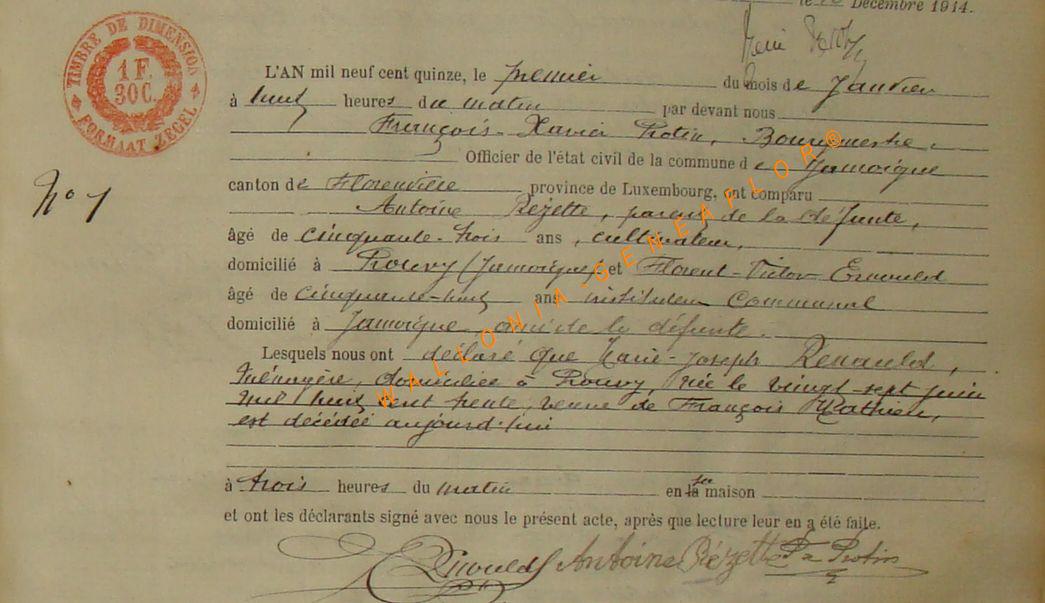 Décembre 1914.
TIMBRE DE DIMENSION
1 F.
30 C.
FORMAAT ZEGEL
L'AN mil neuf cent quinze, le premier du mois de Janvier
à huit heures du matin par devant nous
François-Xavier Protin, Bourgmestre,
Officier de l'état civil de la commune de Jamoigne
N° 1
canton de Florenville province de Luxembourg, ont comparu
Antoine Rézette, parent de la défunte,
âgé de cinquante-trois ans, cultivateur,
domicilié à Prouvy (Jamoigne) et Florent-Victor
âgé de cinquante-huit ans instituteur communal
domicilié à Jamoigne ami de la défunte.
Lesquels nous ont déclaré que Marie-Joseph Renauld,
ménagère, domiciliée à Prouvy, née le vingt-sept juin
mil huit cent trente, veuve de François Mathieu,
est décédée aujourd'hui
à trois heures du matin en sa maison
et ont les déclarants signé avec nous le présent acte, après que lecture leur en a été faite.
Antoine Rézette Protin
WALLONIA-GENEAFLOR®